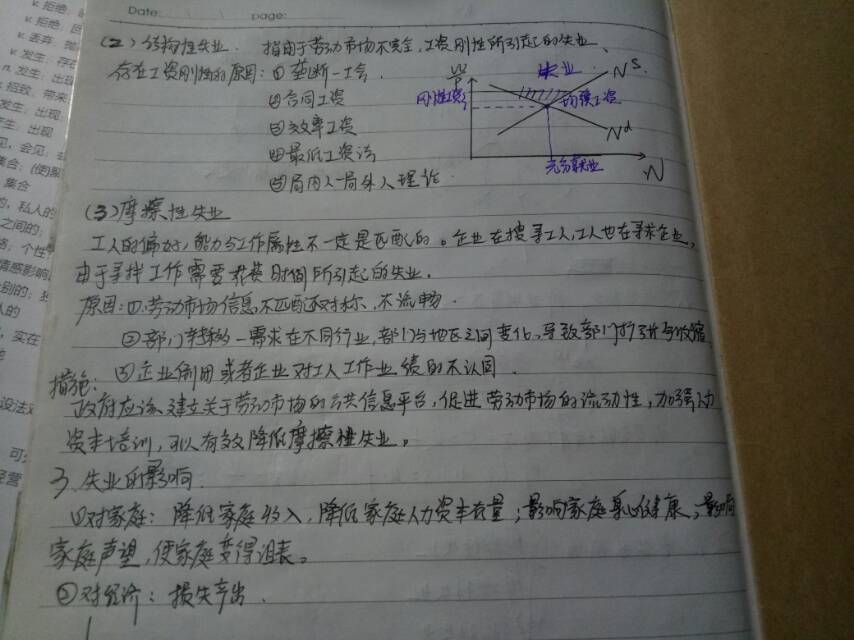 Date: page:
(2) 结构性失业. 指由于劳动市场不完全,工资刚性所引起的失业.
存在工资刚性的原因: ①垄断-工会.
②合同工资
③效率工资
④最低工资法
⑤局内人-局外人理论.
W
P
失业
Nˢ.
刚性工资
均衡工资
Nᵈ
充分就业
N
(3) 摩擦性失业
工人的偏好,能力与工作属性不一定是匹配的。企业在搜寻工人,工人也在寻求企业,
由于寻找工作需要花费时间所引起的失业.
原因: ①.劳动市场信息不匹配不对称,不流畅.
②部门转移-需求在不同行业,部门与地区之间变化,导致部门扩张与收缩
③企业倒闭或者企业对工人工作业绩的不认同.
措施:
政府应该建立关于劳动市场的公共信息平台,促进劳动市场的流动性,加强人力
资本培训,可以有效降低摩擦性失业。
3. 失业的影响.
①对家庭: 降低家庭收入,降低家庭人力资本存量;影响家庭身心健康;影响
家庭声望,使家庭变得沮丧。
②对经济: 损失产出.